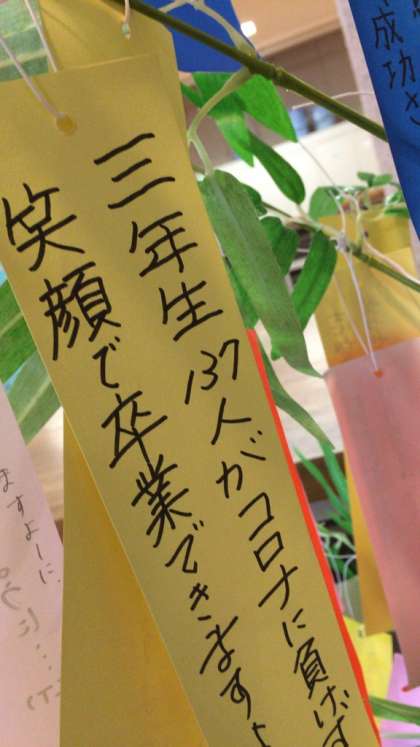 三年生137人がコロナに負けず
笑顔で卒業できますよ
成功さ
ますよーに